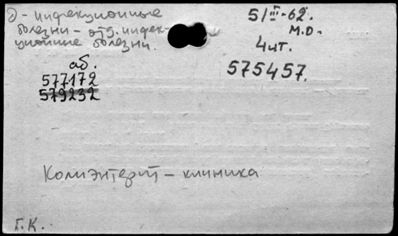 ∂ - инфекционные
болезни - отд. инфек-
ционные болезни.
5/III-62.
М.О.
4 чт.
аб.
577172
579232
575457.
Колиэнтерит - клиника
Г.К.